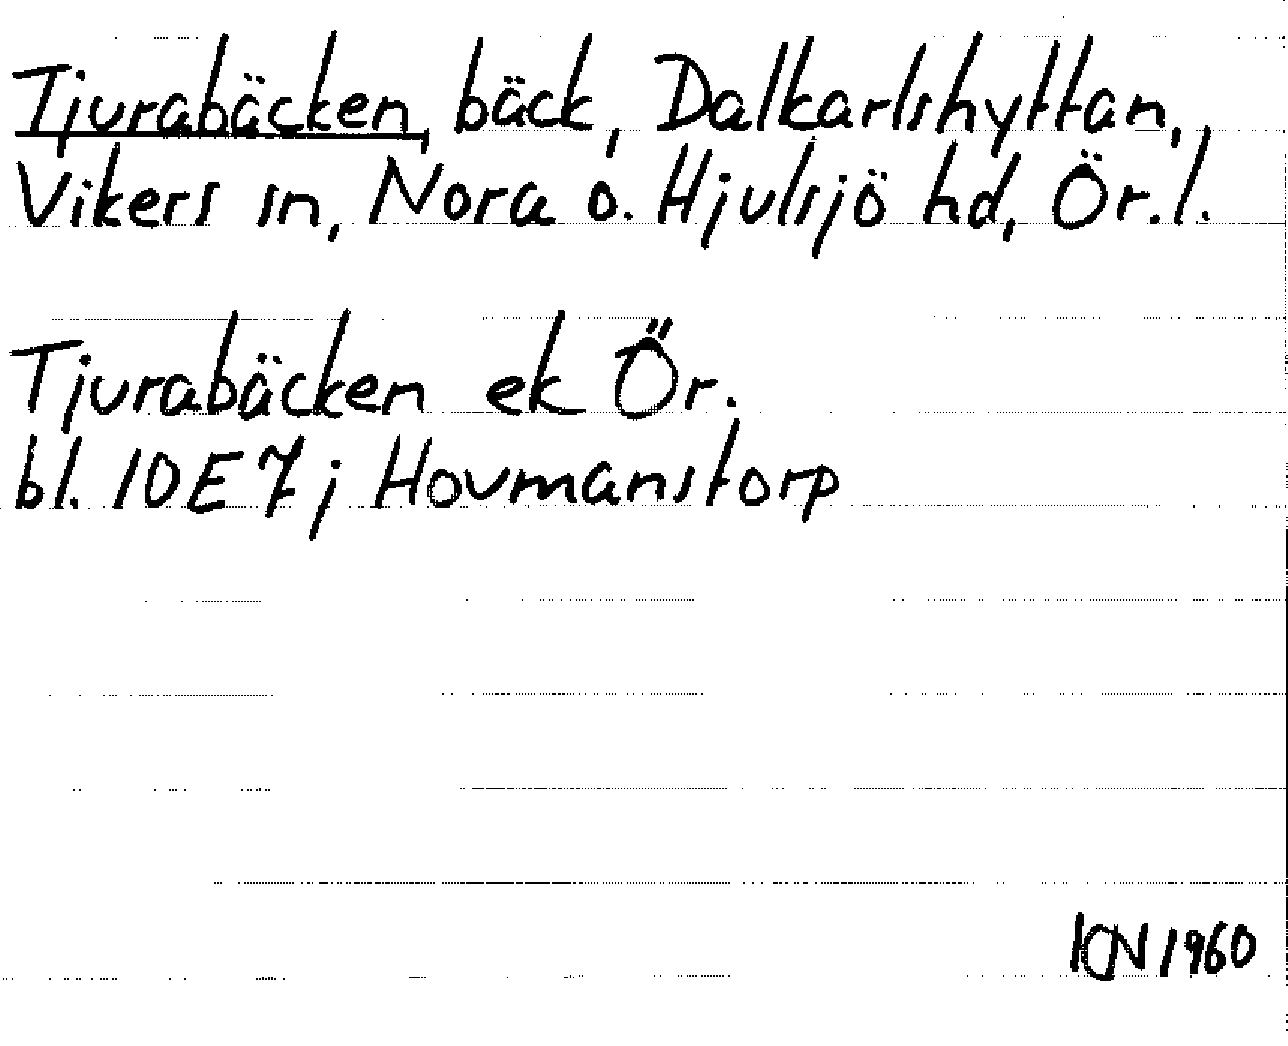 Tjurabäcken, bäck, Dalkarlshyttan,
Vikers sn, Nora o. Hjulsjö hd, Ör.l.
Tjurabäcken ek Ör.
bl. 10E7j Hovmanstorp
KN 1960